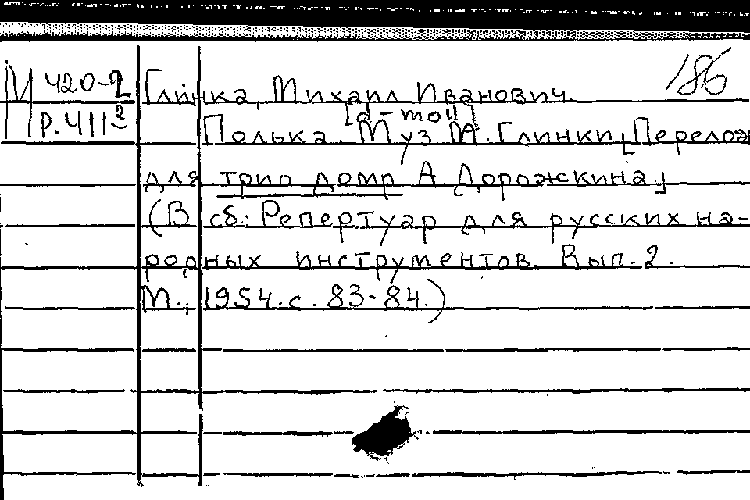 186
М 420-2 Глинка, Михаил Иванович.
Р.411² [d-moll]
Полька. Муз М. Глинки, [Перелож
для трио домр А Дорожкина]
(В сб: Репертуар для русских на-
родных инструментов. Вып. 2.
М., 1954. с. 83-84.)